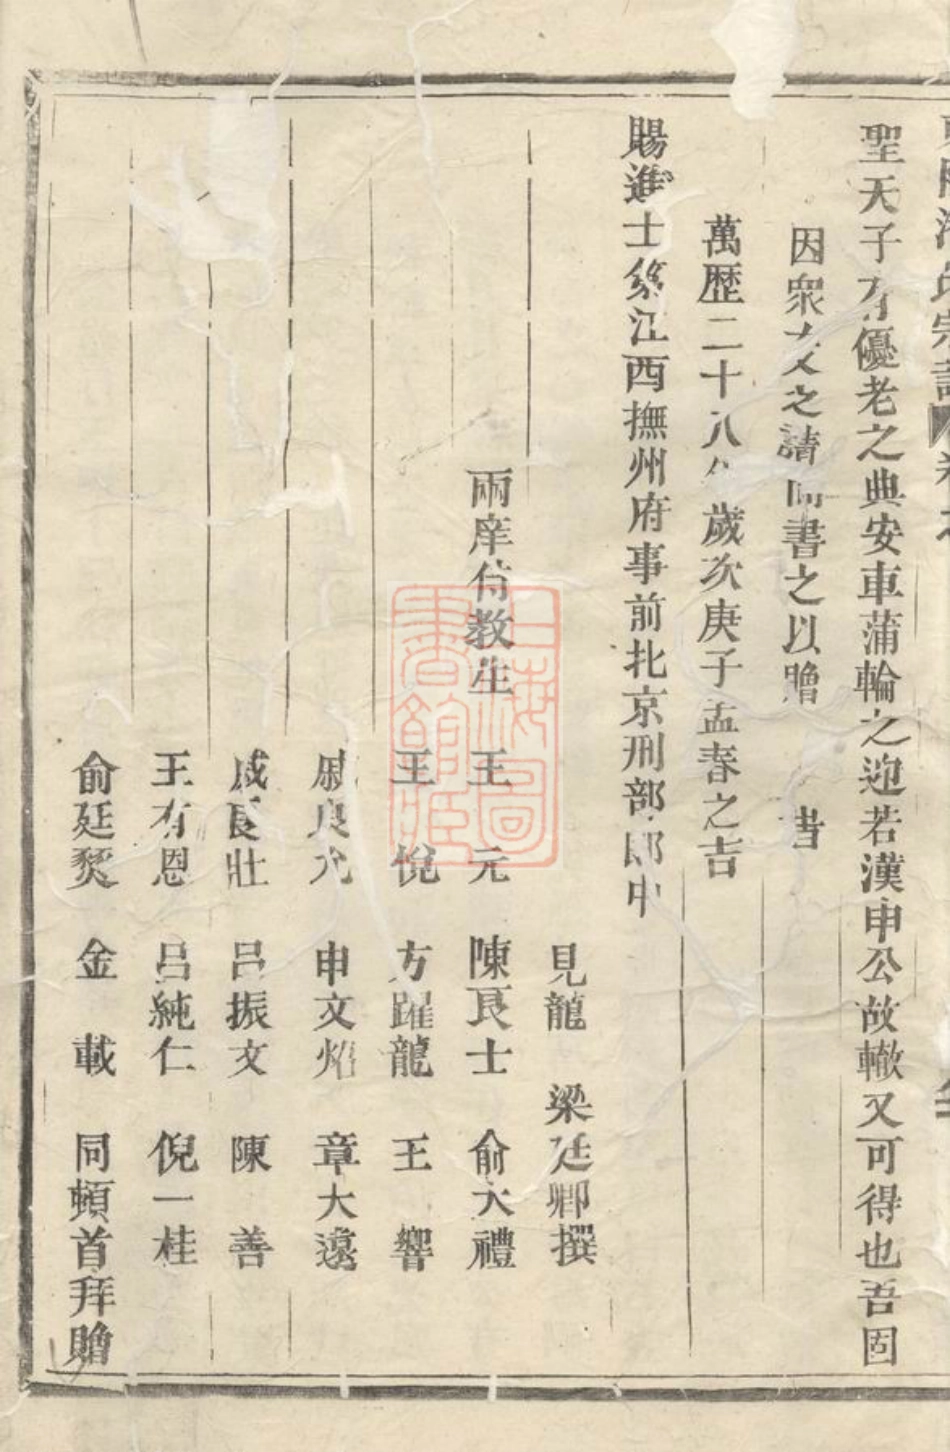 聖天子有優老之典安車蒲輪之迎若漢申公故轍又可得也吾固
因衆友之請而書之以贈 書
萬歷二十八年歲次庚子孟春之吉
賜進士知江西撫州府事前北京刑部郎中
見龍 梁廷卿撰
兩庠侍教生 王元 陳良士 俞大禮
王悅 方躍龍 王響
戚良允 申文焰 章大遠
戚良壯 呂振文 陳善
王有恩 呂純仁 倪一桂
俞廷燹 金載 同頓首拜贈
上海圖書館藏